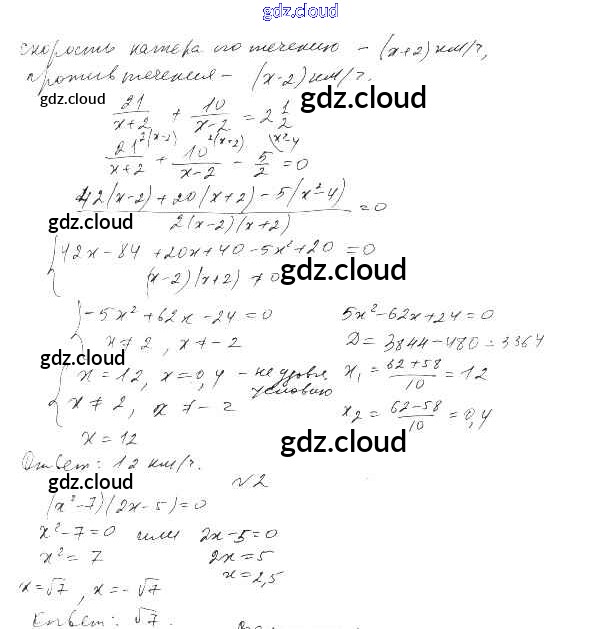 gdz.cloud
скорость катера по течению – (x+2) км/ч,
против течения – (x-2) км/ч.
gdz.cloud
gdz.cloud
21/(x+2) + 10/(x-2) = 2 1/2
2(x-2) 2(x+2) x²-4
21/(x+2) + 10/(x-2) - 5/2 = 0
(42(x-2)+20(x+2)-5(x²-4))/(2(x-2)(x+2)) = 0
gdz.cloud
{ 42x-84+20x+40-5x²+20=0
(x-2)(x+2)≠0
gdz.cloud
{ -5x²+62x-24=0
x≠2, x≠-2
5x²-62x+24=0
D=3844-480=3364
gdz.cloud
{ x=12, x=0,4 – не удовл. условию
x≠2, x≠-2
x₁=(62+58)/10=12
x₂=(62-58)/10=0,4
x=12
gdz.cloud
Ответ: 12 км/ч.
gdz.cloud
№2
(x²-7)(2x-5)=0
x²-7=0 или 2x-5=0
x²=7 2x=5
x=√7, x=-√7 x=2,5
gdz.cloud
gdz.cloud
Ответ: √7.